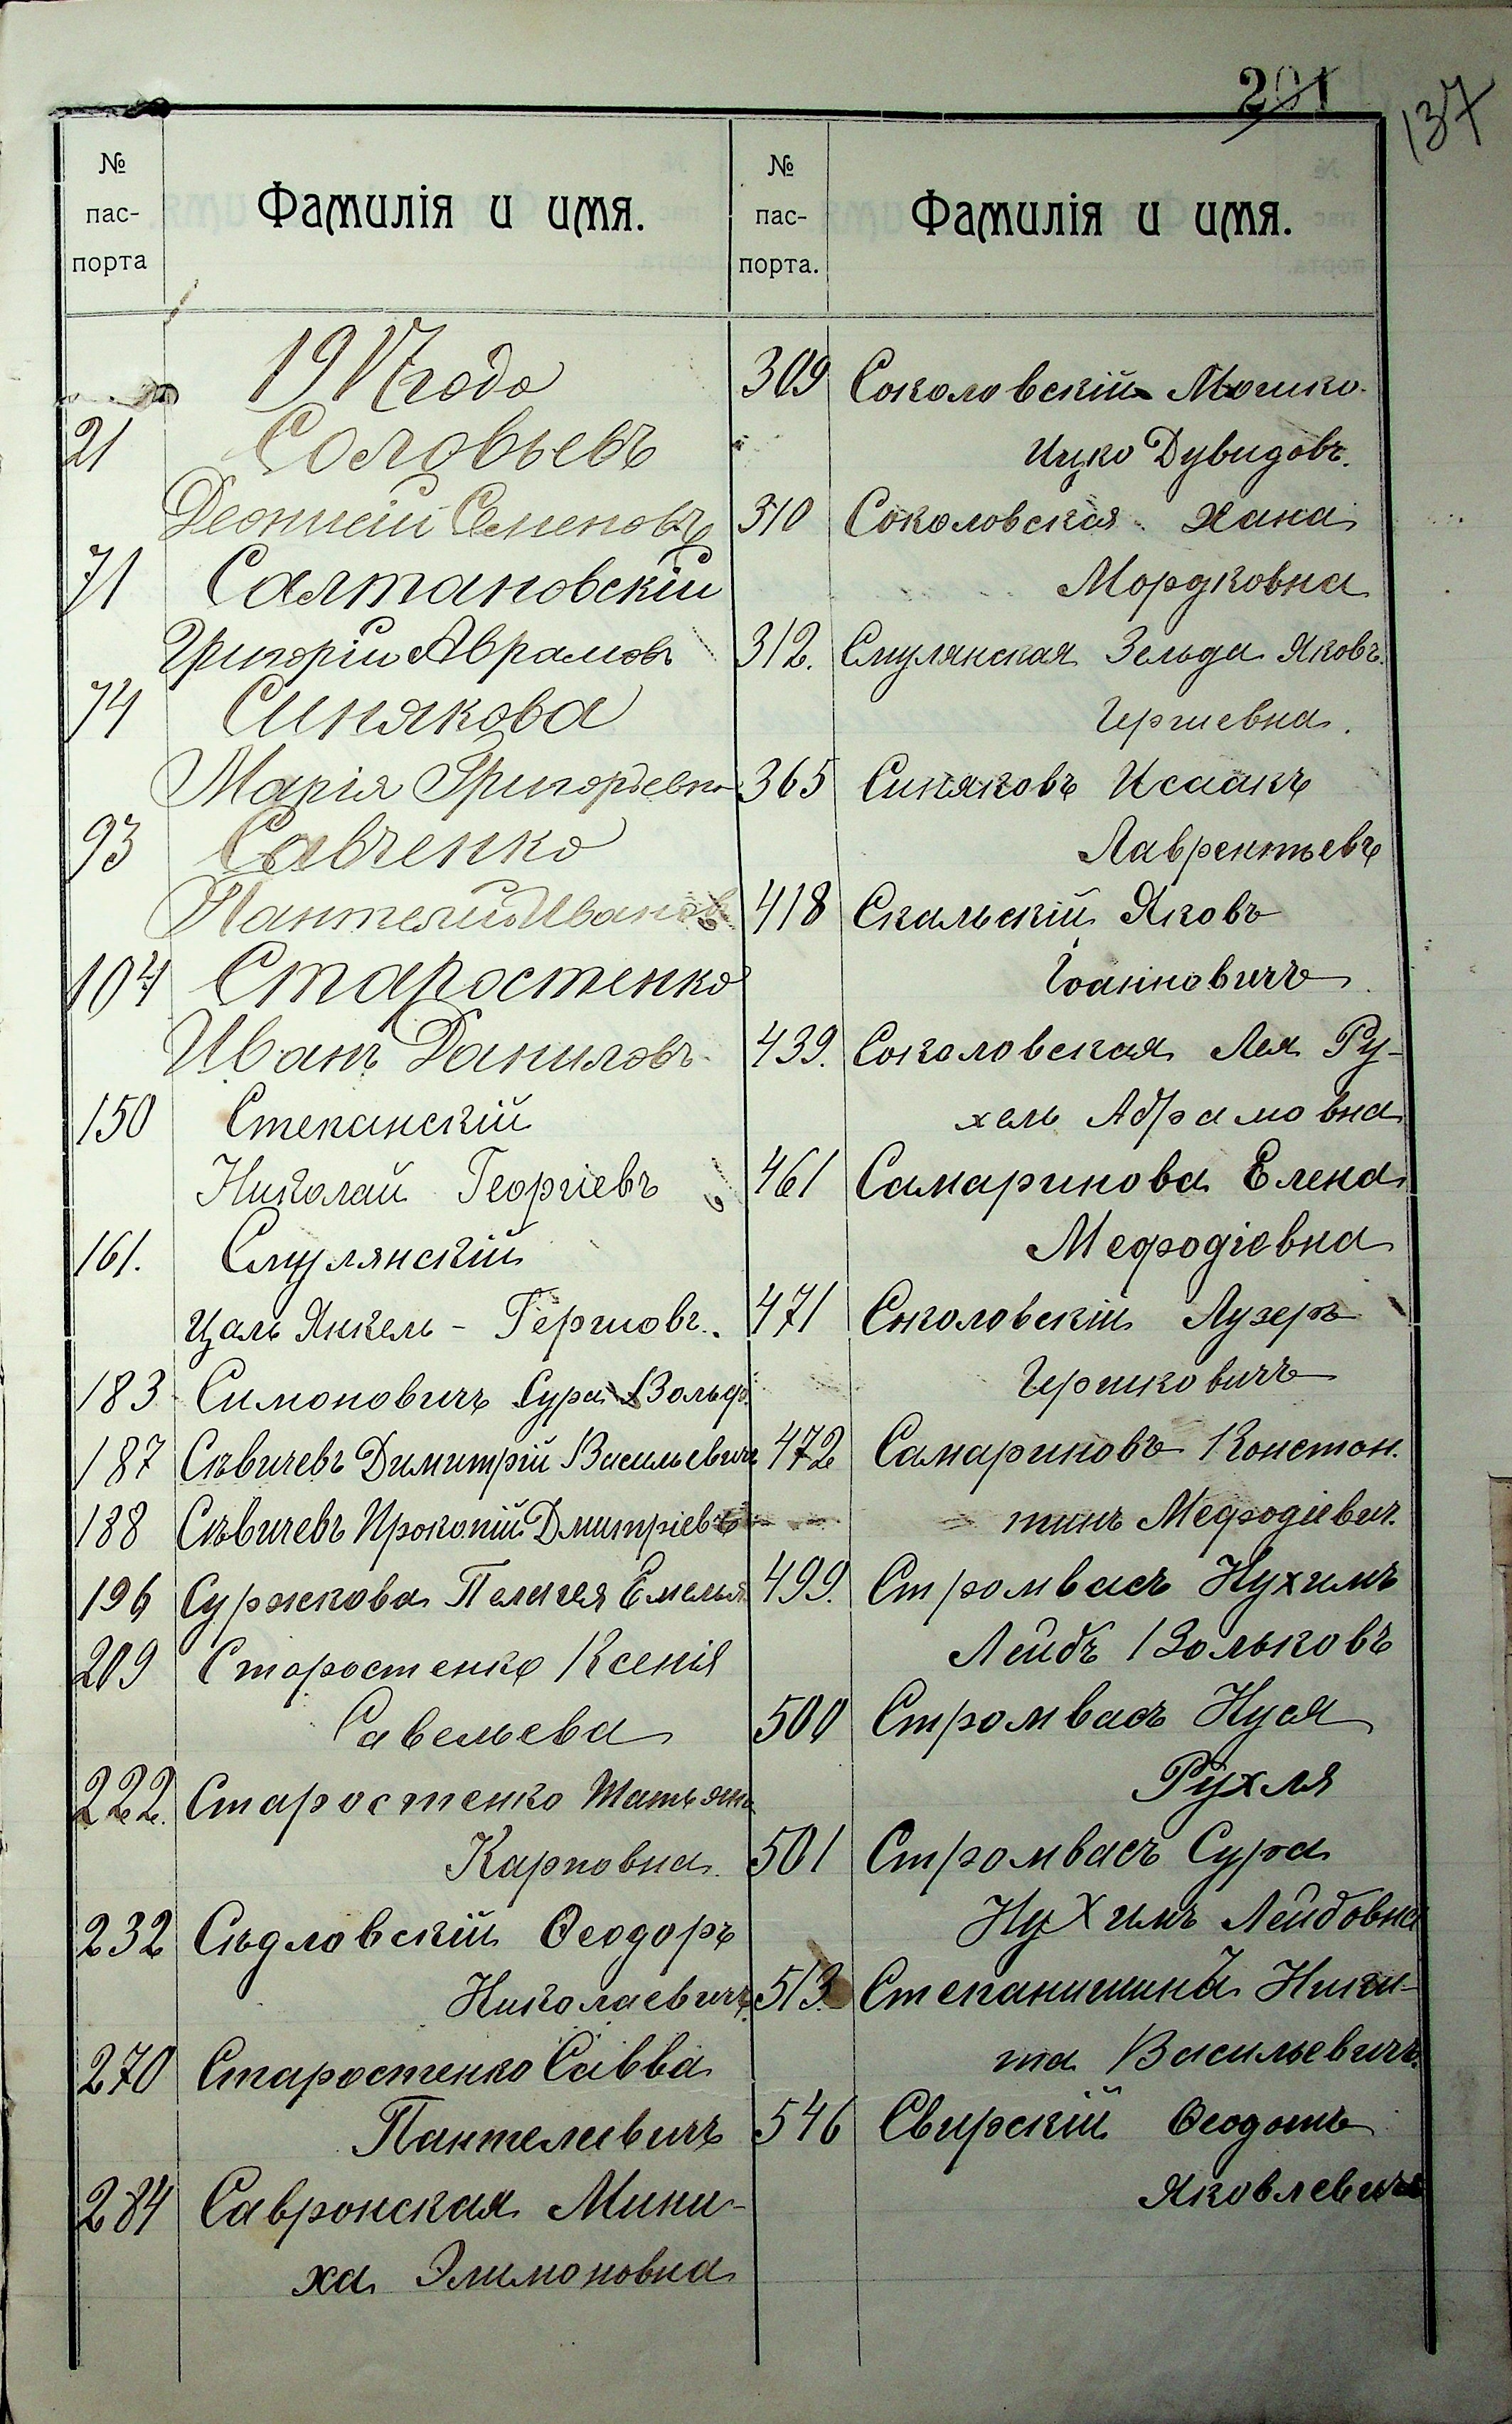 201
137
№ пас-порта
Фамилія и имя.
№ пас-порта.
Фамилія и имя.
1917 года
21 Соловьевъ
Леонтій Семеновъ
71 Салтановскій
Григорій Аврамовъ
74 Синякова
Марія Григорьевна
93 Савченко
Пантелей Ивановъ
104 Старостенко
Иванъ Даниловъ
150 Степанскій
Николай Георгіевъ
161. Смулянскій
Цаль Янкель - Гершовъ.
183 Симоновичъ Сура Вольф.
187 Сѣвичевъ Димитрій Васильевичъ
188 Сѣвичевъ Прокопій Дмитріевъ
196 Суржкова Пелагея Емелья
209 Старостенко Ксенія
Савельева
222. Старостенко Татьяна
Карповна
232 Сѣдловскій Ѳеодоръ
Николаевичъ.
270 Старостенко Савва
Пантелеевичъ
284 Савронская Мини-
ха Элимоновна
309 Соколовскій Мошко
Ицко Дувидовъ.
310 Соколовская Хана
Мордковна
312. Смулянская Зельда Яковъ
Гершевна.
365 Синяковъ Исаакъ
Лаврентьевъ
418 Скальскій Яковъ
Іоанновичъ
439. Соколовская Лея Ру-
хель Абрамовна
461 Самаринова Елена
Мефодіевна
471 Соколовскій Лузеръ
Гершковичъ
472 Самариновъ Констан.
тинъ Мефодіевич.
499. Стромвасъ Нухимъ
Лейбъ Вольковъ
500 Стромвасъ Нуся
Рухля
501 Стромвасъ Сура
Нухимъ Лейбовна
513. Степанишина Ники-
та Васильевичъ.
546 Свирскій Ѳеодотъ
Яковлевичъ